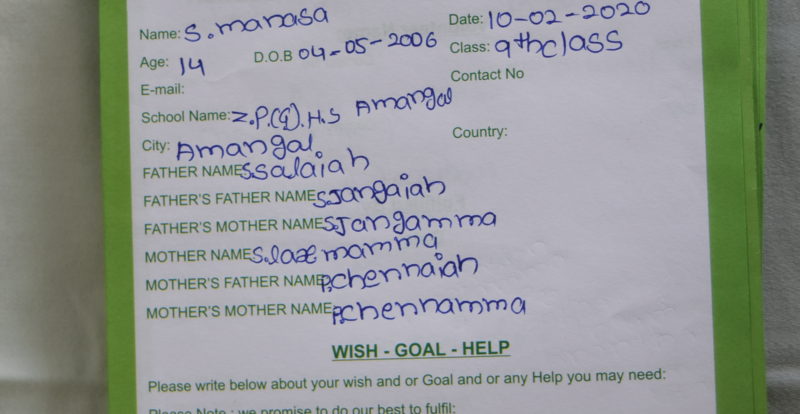 Name: S.manasa Date: 10-02-2020
Age: 14 D.O.B 04-05-2006 Class: 9thclass
E-mail: Contact No
School Name: Z.P.(G).H.S Amangal
City: Amangal Country:
FATHER NAME S Salaiah
FATHER'S FATHER NAME S.Jangaiah
FATHER'S MOTHER NAME S.Jangamma
MOTHER NAME S.laxemamma
MOTHER'S FATHER NAME P.chennaiah
MOTHER'S MOTHER NAME P.chennamma
WISH - GOAL - HELP
Please write below about your wish and or Goal and or any Help you may need:
Please Note : we promise to do our best to fulfil: